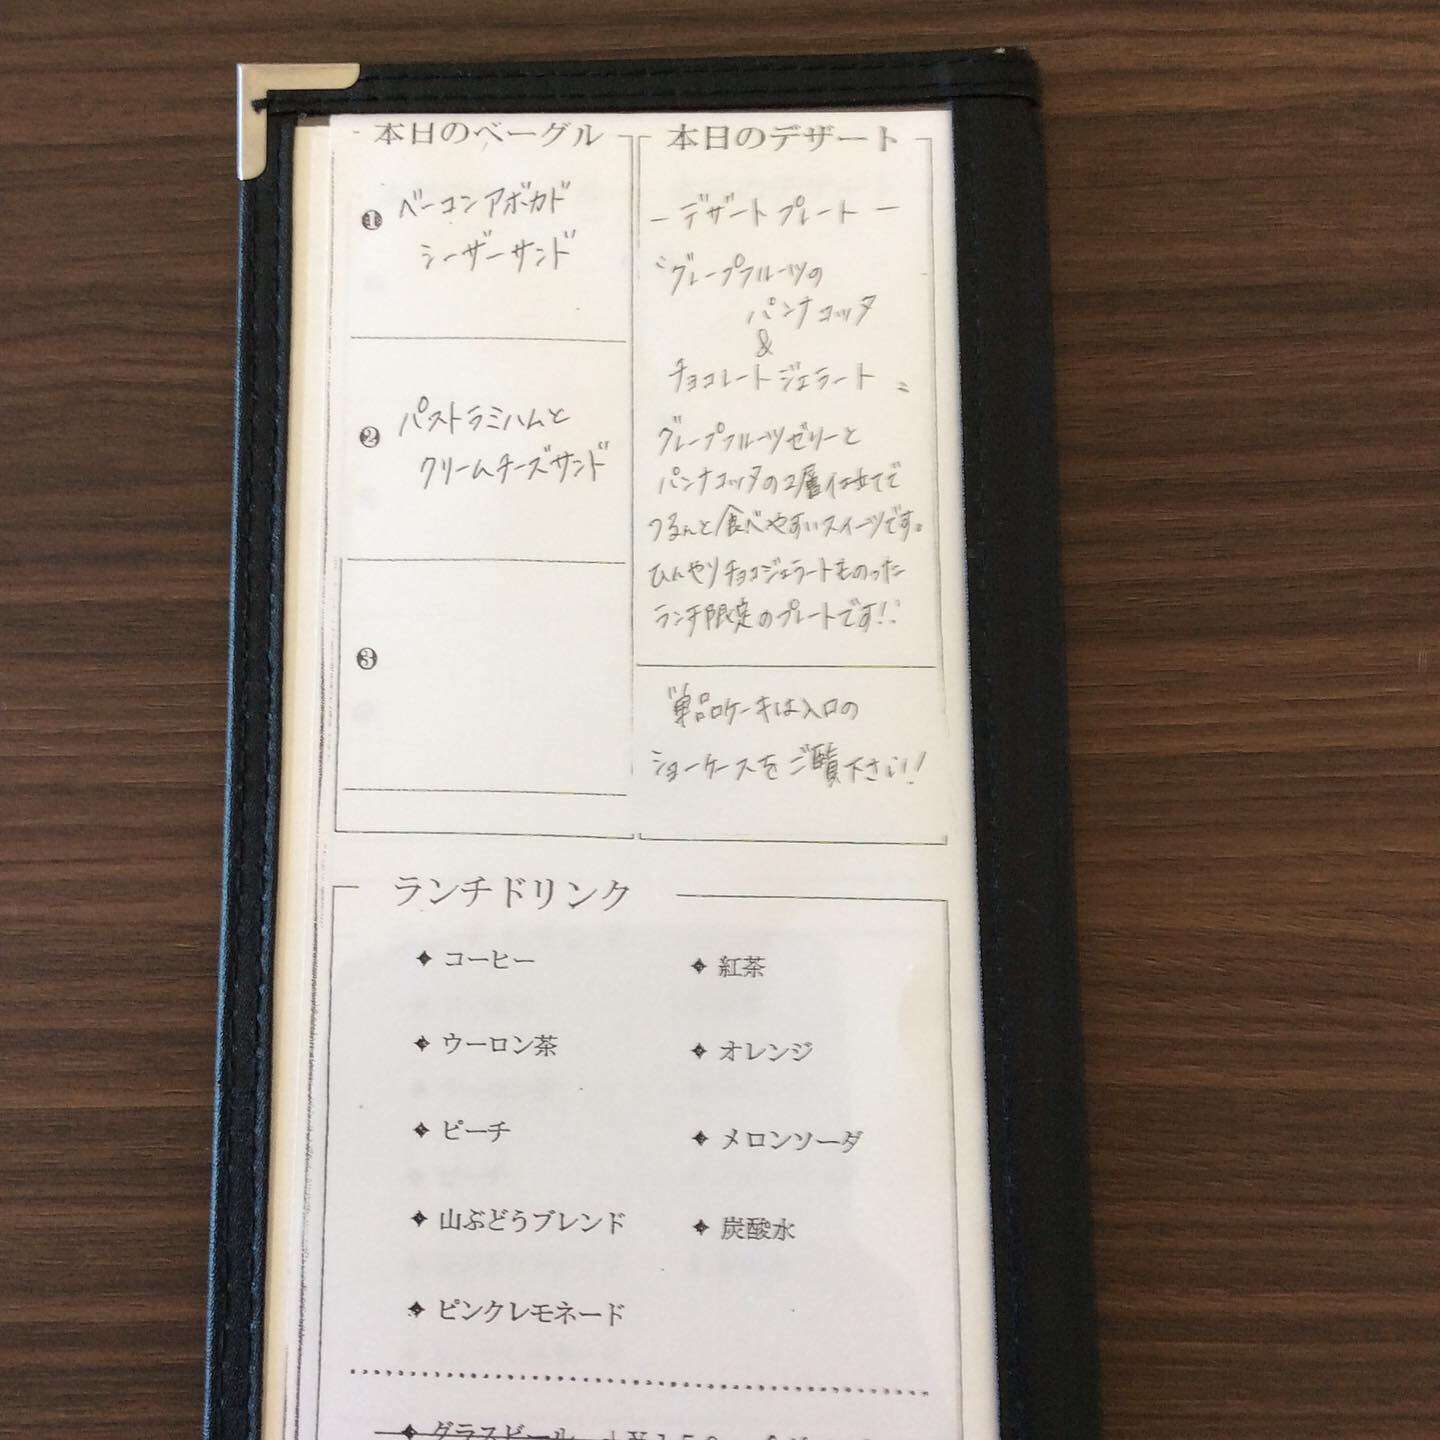 本日のベーグル
❶ ベーコンアボカド
シーザーサンド
❷ パストラミハムと
クリームチーズサンド
❸
本日のデザート
ー デザートプレート ー
"グレープフルーツの
パンナコッタ
&
チョコレートジェラート"
グレープフルーツゼリーと
パンナコッタの2層仕立てで
つるんと食べやすいスイーツです。
ひんやりチョコジェラートものった
ランチ限定のプレートです!!
単品ケーキは入口の
ショーケースをご覧下さい!
ランチドリンク
コーヒー
紅茶
ウーロン茶
オレンジ
ピーチ
メロンソーダ
山ぶどうブレンド
炭酸水
ピンクレモネード
グラスビール